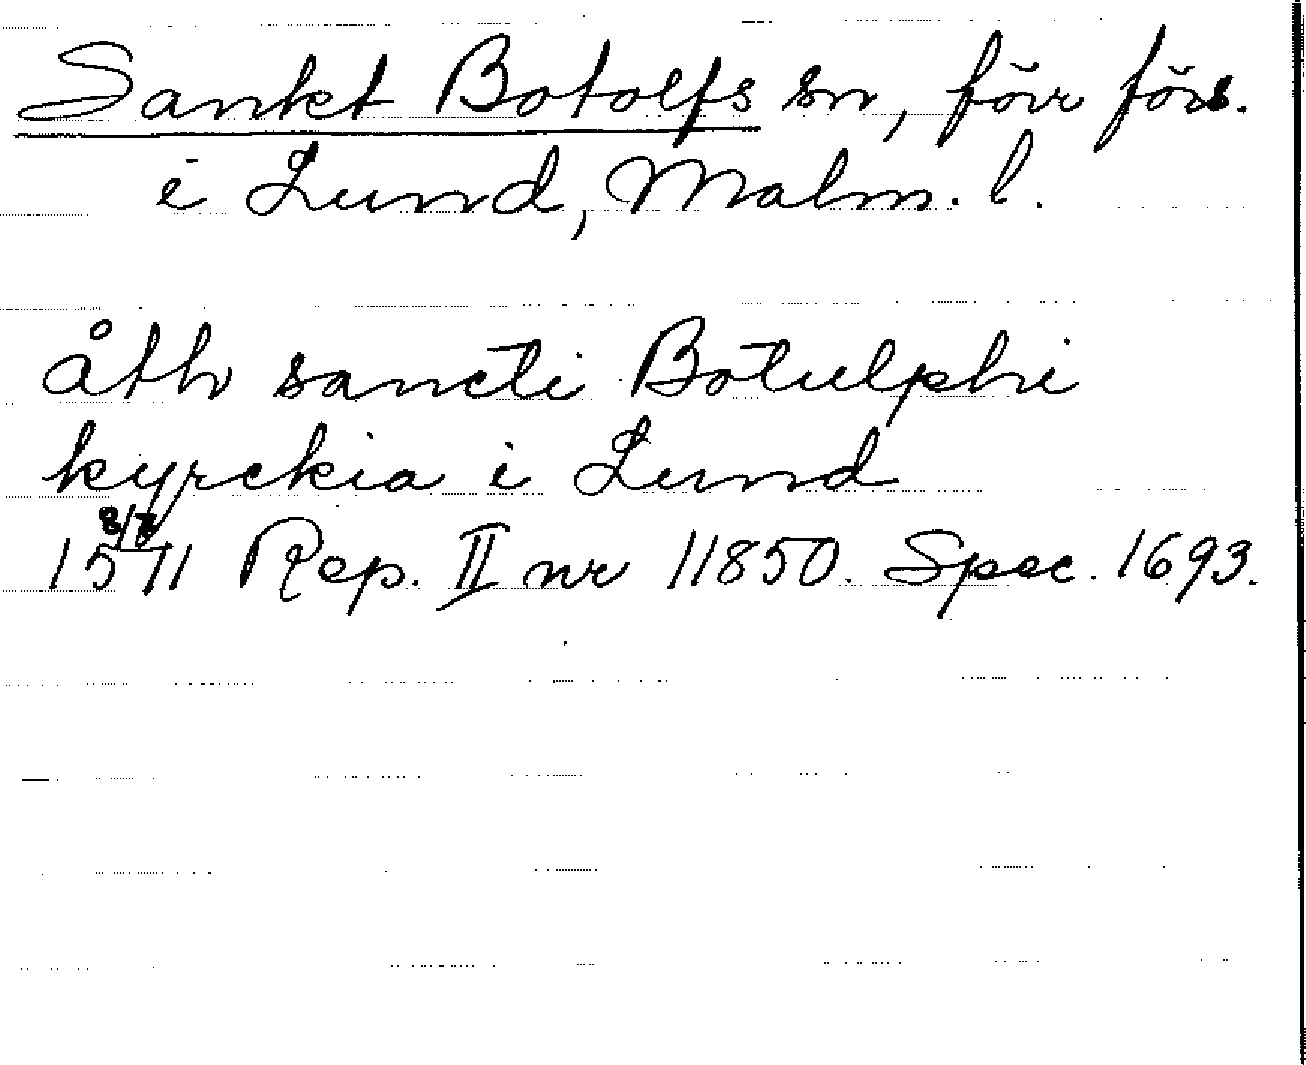 Sankt Botolfs sn, förr förs.
i Lund, Malm. l.
åth sancti Botulphi
kyrckia i Lund
1511 Rep. II nr 11850. Spec. 1693.